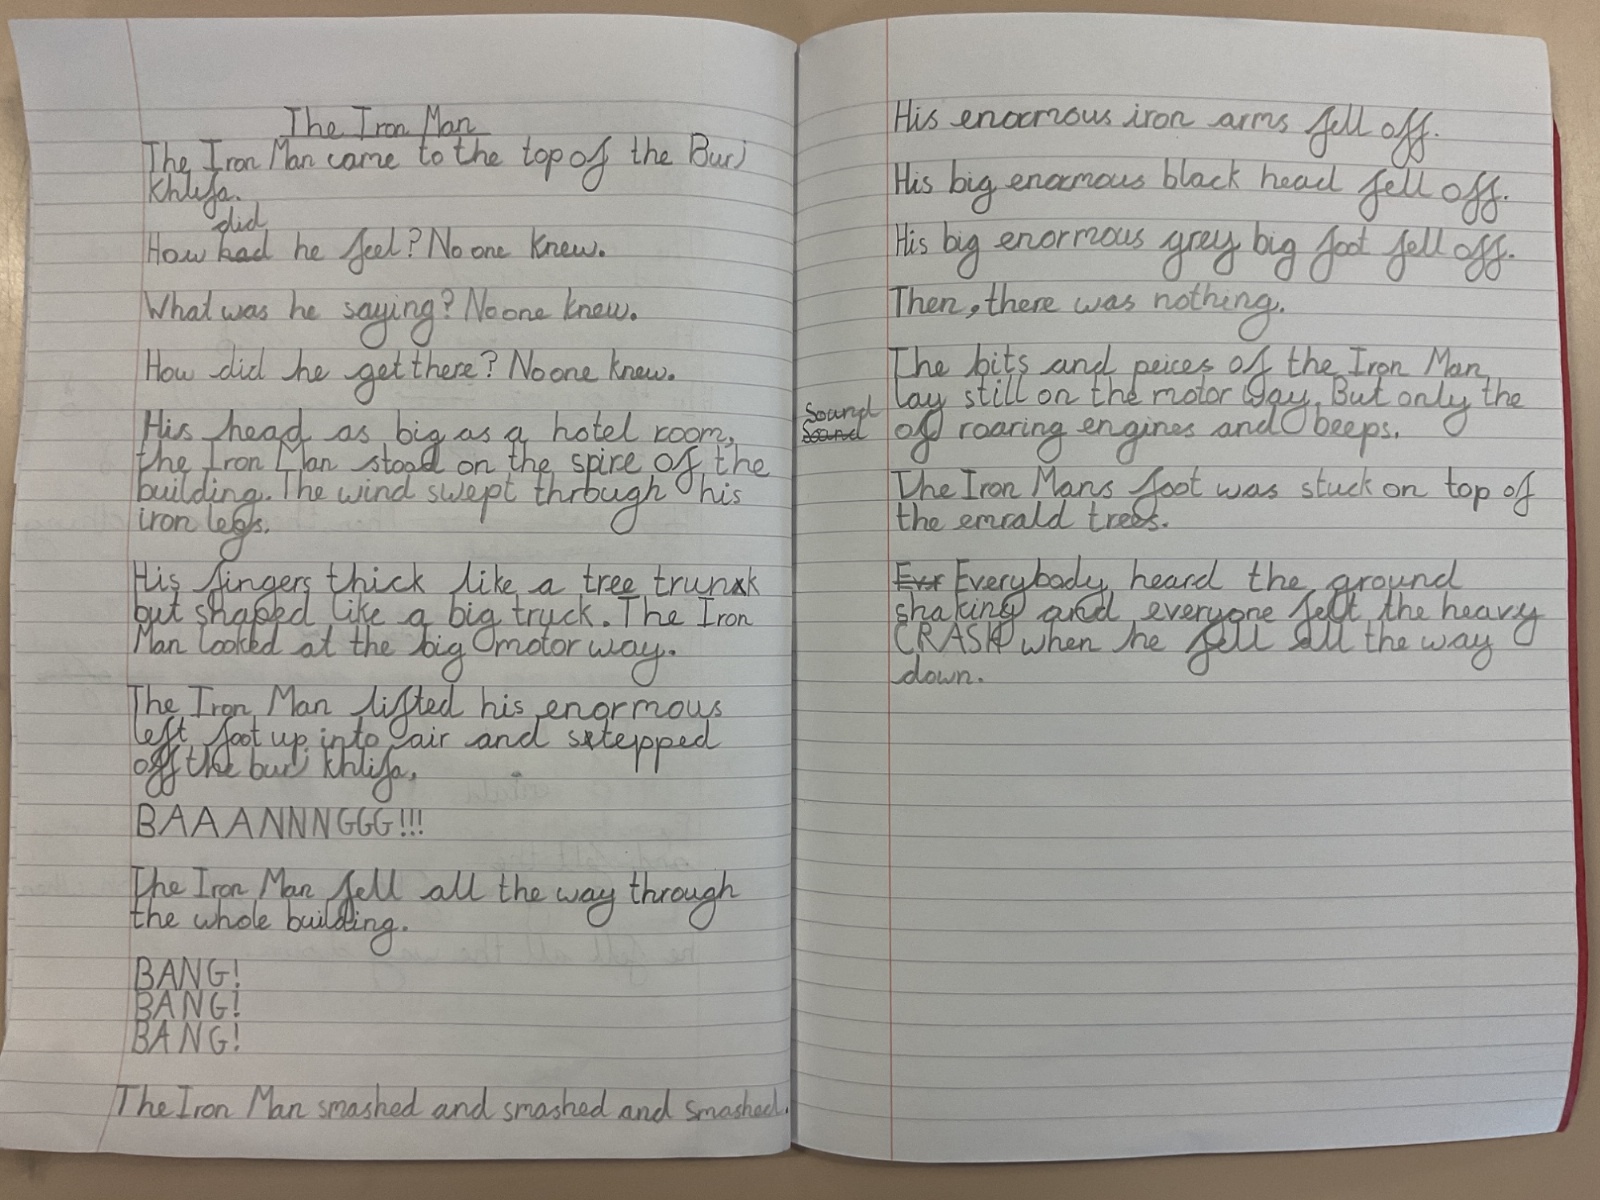 The Iron Man
The Iron Man came to the top of the Burj
Khlifa.
did
How had he feel? No one knew.
What was he saying? No one knew.
How did he get there? No one knew.
His head as big as a hotel room,
the Iron Man stood on the spire of the
building. The wind swept through his
iron legs.
His fingers thick like a tree trunk
but shaped like a big truck. The Iron
Man looked at the big motor way.
The Iron Man lifted his enormous
left foot up into air and stepped
off the burj khlifa.
BAAANNNGGG!!!
The Iron Man fell all the way through
the whole building.
BANG!
BANG!
BANG!
The Iron Man smashed and smashed and smashed.
His enormous iron arms fell off.
His big enormous black head fell off.
His big enormous grey big foot fell off.
Then, there was nothing.
The bits and peices of the Iron Man
lay still on the motor way. But only the
Sound
Sound
of roaring engines and beeps.
The Iron Mans foot was stuck on top of
the emrald trees.
Evr Everybody heard the ground
shaking and everyone felt the heavy
CRASH when he fell all the way
down.